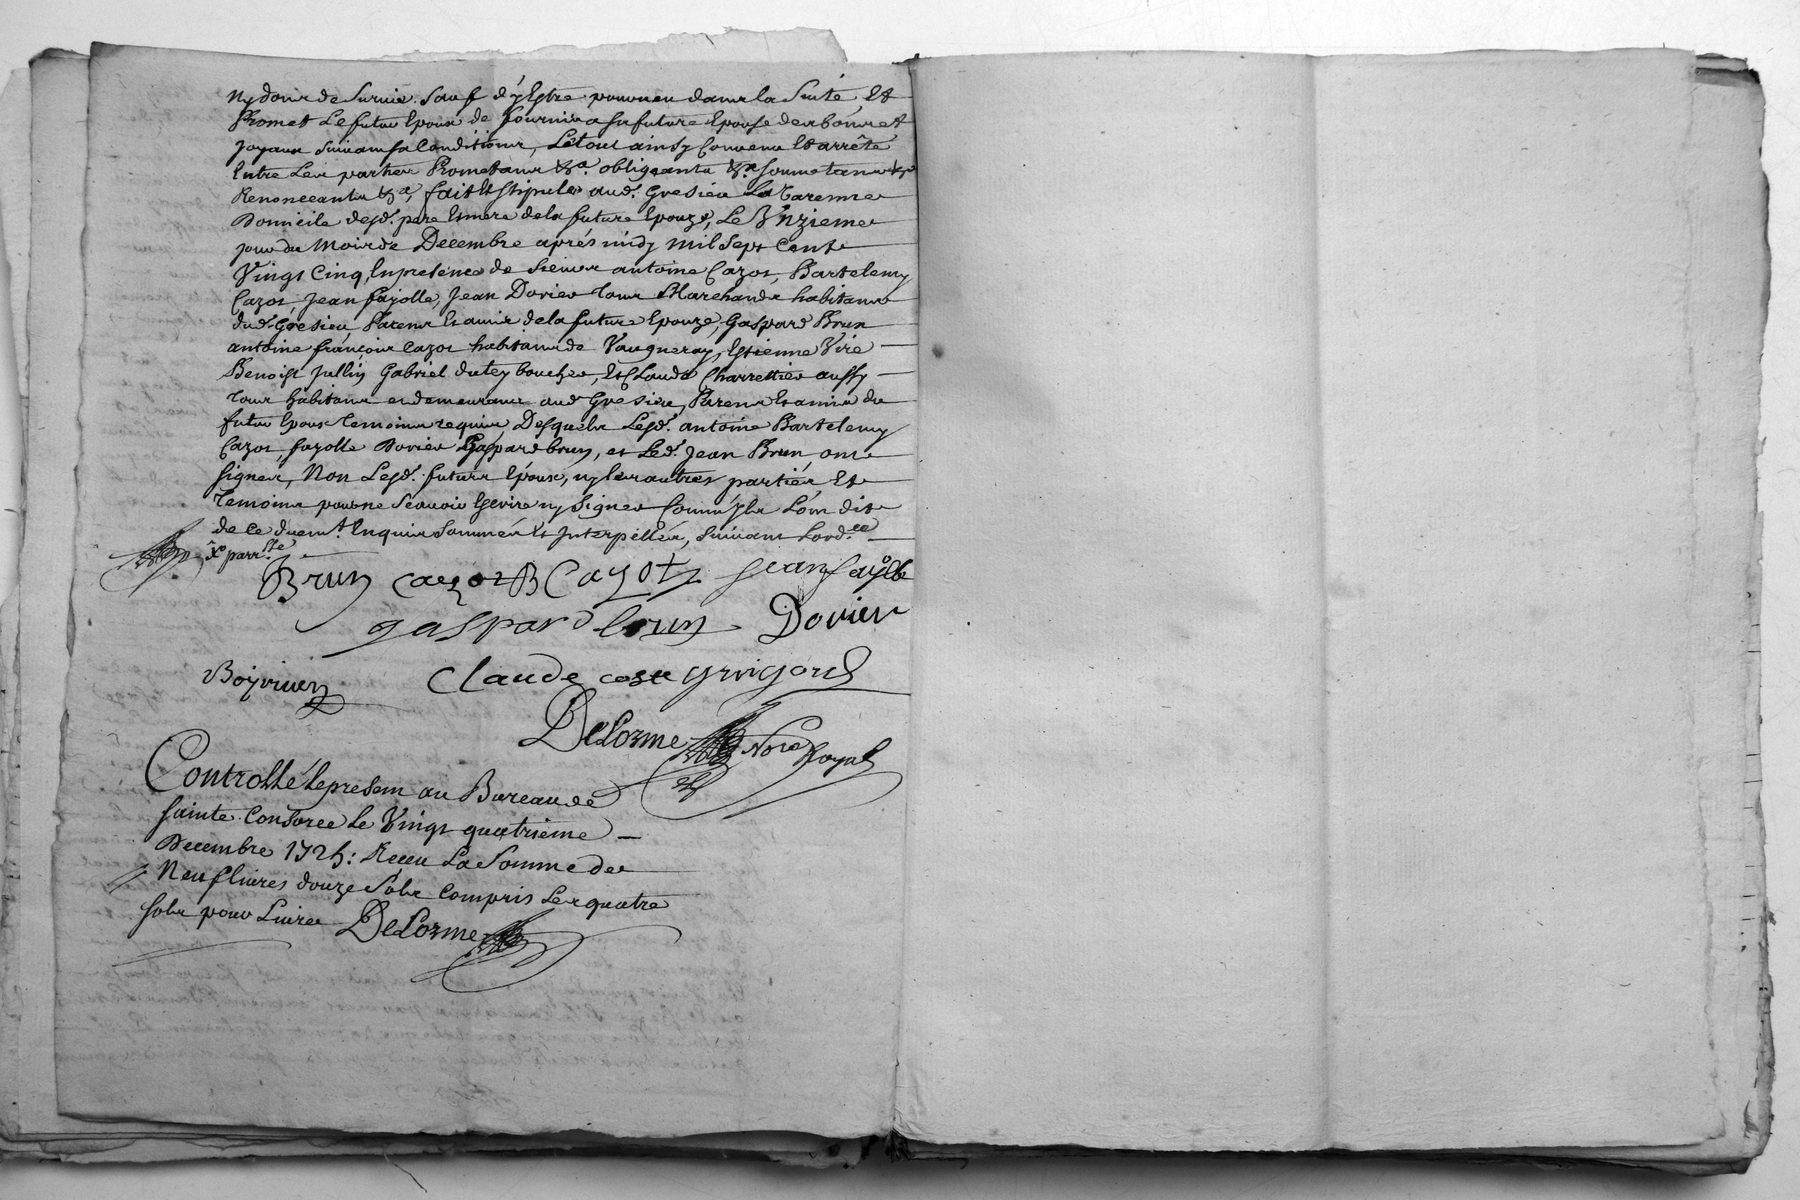 ny donn de Survie. Sauf d'y Estre pourveu dans la Suite, Et
Promet Le futur Epoux de fournir a sa future Epouse des bonnes et
joyaux Suivant sa Condition, Le tout ainsy Convenu Et arrêté
Entre Les parties Promettant &a. obligeants &a soumettants &a
Renonceants &a, fait Et Stipulé aud. Gresieu La Varenne
Domicile desd. pere Et mere de la future Epouze, Le Unzieme
jour du Mois de Decembre aprés midy Mil Sept Cents
Vingt Cinq, En presence de Sieurs antoine Cazot, Bartelemy
Cazot, Jean fayolle, Jean Dorier tous Marchands habitants
dud. Gresieu Parens Et amis de la future Epouze, Gaspard Brun
antoine françois Cazot habitants de Vaugneray, Estienne Viré
Benoist Jullin Gabriel dutey boucher, Et Claude Charrettier aussy
tous habitans et demeurans aud. Gresieu, Parens Et amis du
futur Epoux temoins requis Desquels Lesd. antoine Bartelemy
Cazot, fayolle Dorier Gaspard brun, et Led. Jean Brun, ont
Signés, Non Lesd. futurs Epoux, ny les autres partiés Et
temoins pour ne Scavoir Escrire ny Signer Comm'ils L'ont dit
de ce duemt. Enquis Sommés Et Interpellés, Suivant Lord.ce
Xo parr.lle
Brun cazot B Cazot jean fayolle
gaspard brun Dorier
Boyriven Claude coste grigord
DeLorme Nore Royal
Controllé Le present au Bureau de
Sainte Consorce Le Vingt quatrieme
Decembre 1725: Receu La Somme de
Neuf livres douze Sols Compris Les quatre
Sols pour Livre DeLorme